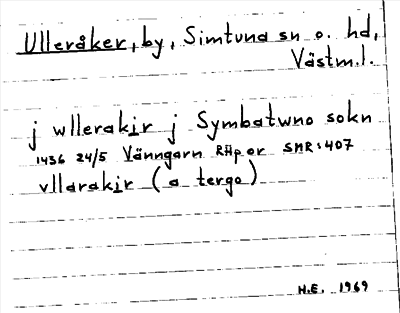 Ulleråker, by, Simtuna sn o. hd,
Västm.l.
j wllerakir j Symbatwno sokn
1436 24/5 Vänngarn RHp or SMR:407
vllarakir (a tergo)
H.E. 1969